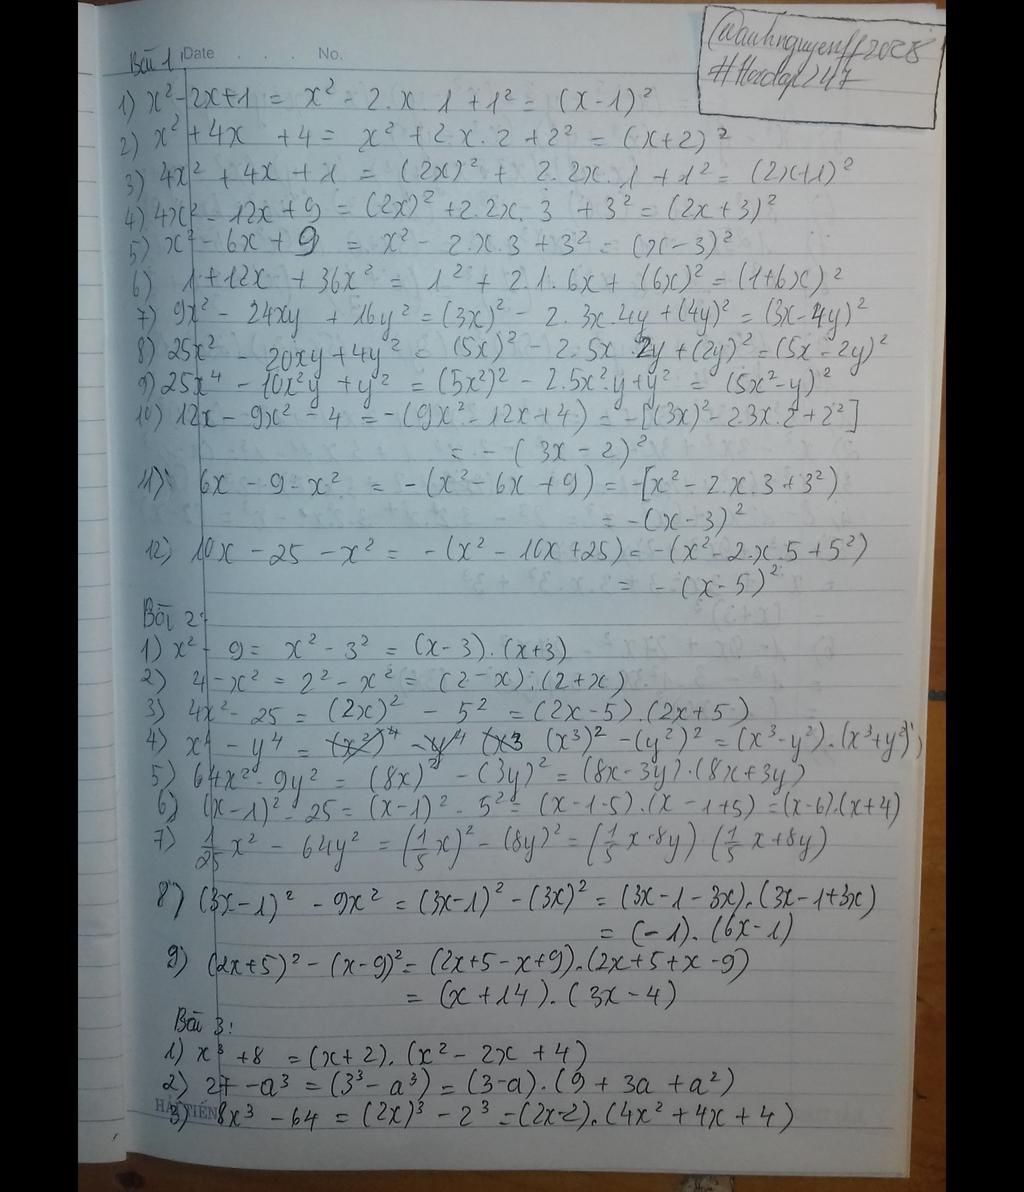 @anhnguyenff2028
#Hoidap247
Date . . . . No.
Bài 1
1) x² - 2x + 1 = x² - 2.x.1 + 1² = (x-1)²
2) x² + 4x + 4 = x² + 2x.2 + 2² = (x+2)²
3) 4x² + 4x + 1 = (2x)² + 2.2x.1 + 1² = (2x+1)²
4) 4x² - 12x + 9 = (2x)² + 2.2x.3 + 3² = (2x+3)²
5) x² - 6x + 9 = x² - 2.x.3 + 3² = (x-3)²
6) 1 + 12x + 36x² = 1² + 2.1.6x + (6x)² = (1+6x)²
7) 9x² - 24xy + 16y² = (3x)² - 2.3x.4y + (4y)² = (3x-4y)²
8) 25x² - 20xy + 4y² = (5x)² - 2.5x.2y + (2y)² = (5x-2y)²
9) 25x⁴ - 10x²y + y² = (5x²)² - 2.5x².y + y² = (5x²-y)²
10) 12x - 9x² - 4 = -(9x² - 12x + 4) = -[(3x)² - 2.3x.2 + 2²]
= -(3x - 2)²
11) 6x - 9 - x² = -(x² - 6x + 9) = -[x² - 2.x.3 + 3²)
= -(x-3)²
12) 10x - 25 - x² = -(x² - 10x + 25) = -(x² - 2.x.5 + 5²)
= -(x-5)²
Bài 2:
1) x² - 9 = x² - 3² = (x-3).(x+3)
2) 4 - x² = 2² - x² = (2-x).(2+x)
3) 4x² - 25 = (2x)² - 5² = (2x-5).(2x+5)
4) x⁴ - y⁴ = (x³)² - (y²)² = (x³-y²).(x³+y²)
5) 64x² - 9y² = (8x)² - (3y)² = (8x-3y).(8x+3y)
6) (x-1)² - 25 = (x-1)² - 5² = (x-1-5).(x-1+5) = (x-6).(x+4)
7) 1/25 x² - 64y² = (1/5 x)² - (8y)² = (1/5 x - 8y).(1/5 x + 8y)
8) (3x-1)² - 9x² = (3x-1)² - (3x)² = (3x-1-3x).(3x-1+3x)
= (-1).(6x-1)
9) (2x+5)² - (x-9)² = (2x+5-x+9).(2x+5+x-9)
= (x+14).(3x-4)
Bài 3:
1) x³ + 8 = (x+2).(x² - 2x + 4)
2) 27 - a³ = (3³ - a³) = (3-a).(9 + 3a + a²)
3) 8x³ - 64 = (2x)³ - 2³ = (2x-2).(4x² + 4x + 4)